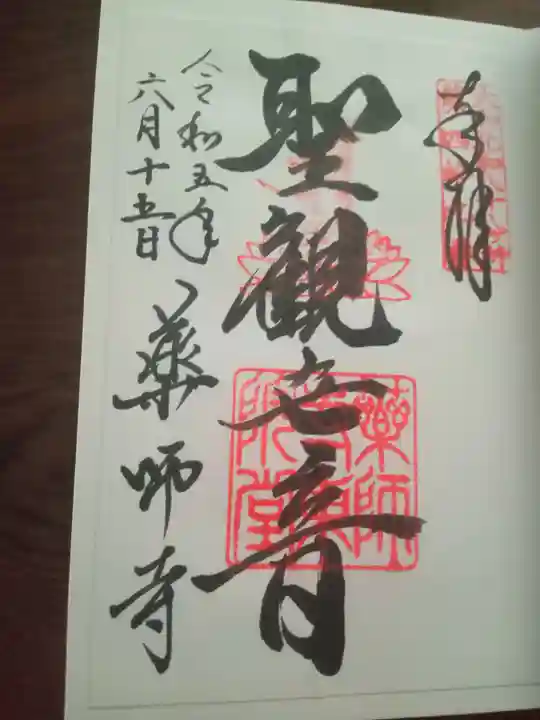 奉拝
聖觀世音
令和五年
六月十五日
薬師寺
薬師寺東院堂